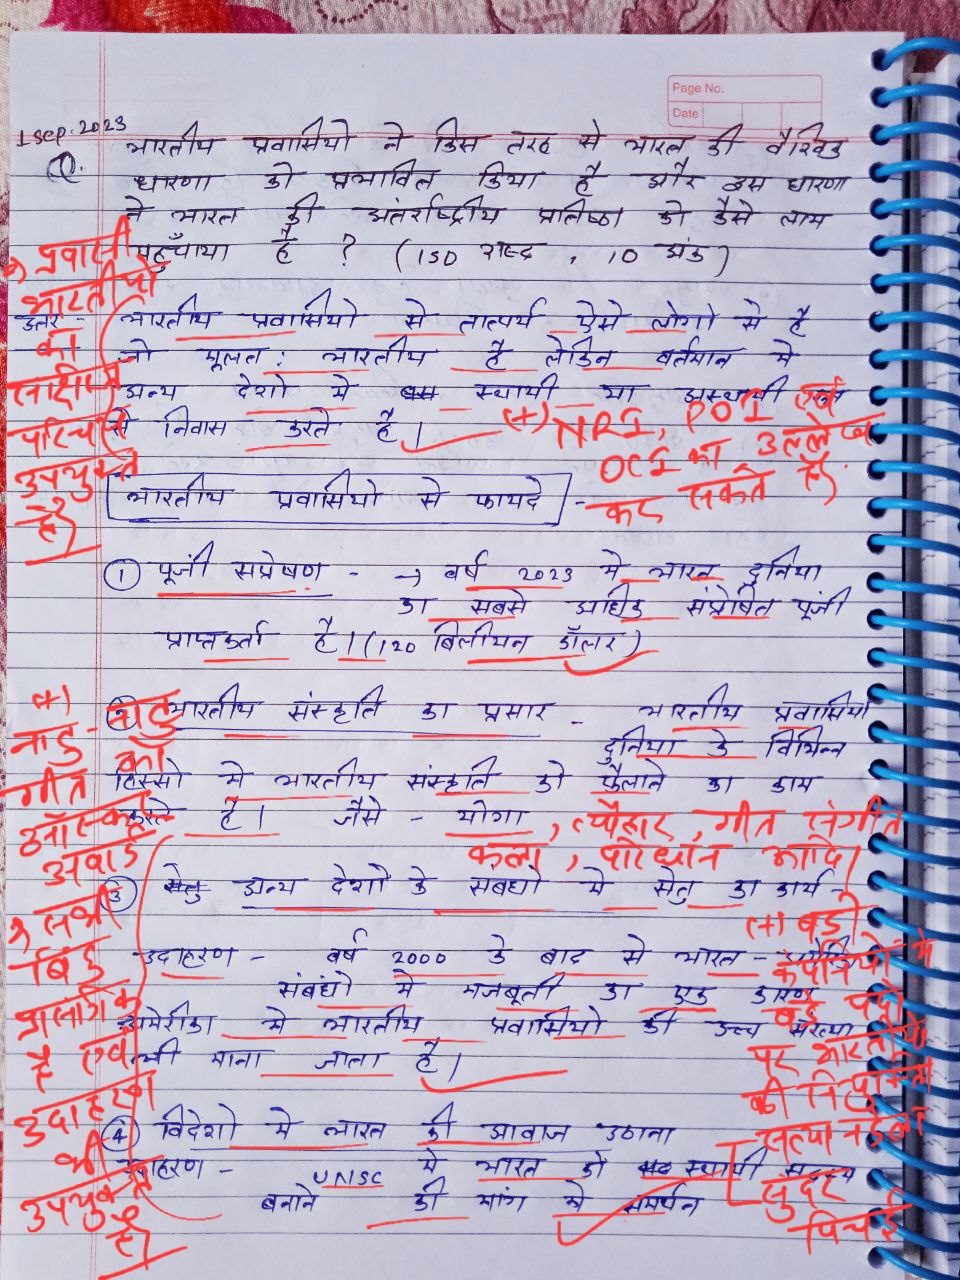 Page No.
Date
1 Sep. 2023
Q. भारतीय प्रवासियो ने किस तरह से भारत की वैश्विक
धारणा को प्रभावित किया है और इस धारणा
ने भारत की अंतर्राष्ट्रीय प्रतिष्ठा को कैसे लाभ
पहुँचाया है ? (150 शब्द, 10 अंक)
प्रवासी
भारतीयो
का
परिचय
उपयुक्त
है।
उत्तर - भारतीय प्रवासियो से तात्पर्य ऐसे लोगो से है
जो मूलत: भारतीय है लेकिन वर्तमान मे
अन्य देशो मे स्थायी या अस्थायी
से निवास करते है।
(+) NRI, POI एवं
OCI का उल्लेख
कर सकते हैं।
भारतीय प्रवासियो से फायदे -
① पूंजी सप्रेषण - → वर्ष 2023 मे भारत दुनिया
का सबसे अधिक संप्रेषित पूंजी
प्राप्तकर्ता है। (120 बिलीयन डॉलर)
② भारतीय संस्कृति का प्रसार - भारतीय प्रवासियो
दुनिया के विभिन्न
हिस्सो मे भारतीय संस्कृति को फैलाने का काम
करते है। जैसे - योगा, त्यौहार, गीत संगीत
कला, परिधान आदि।
(+)
नाटु - नाटु
गीत को
ऑस्कर
अवार्ड
③ अन्य देशो के सबंधो मे सेतु का कार्य -
उदाहरण - वर्ष 2000 के बाद से भारत -
संबंधो मे मजबूती का एक कारण
अमेरीका मे भारतीय प्रवासियो की उच्च संख्या
भी माना जाता है।
(+) बड़ी
कंपनियो मे
बड़े पदो
पर भारतीयो
की नियुक्ति
सत्या नडेला
सुंदर
पिचई
सभी
बिंदु
प्रासंगिक
है एवं
उदाहरण
भी
उपयुक्त
है।
④ विदेशो मे भारत की आवाज उठाना
उदाहरण - UNSC मे भारत को स्थायी सदस्य
बनाने की मांग मे समर्थन